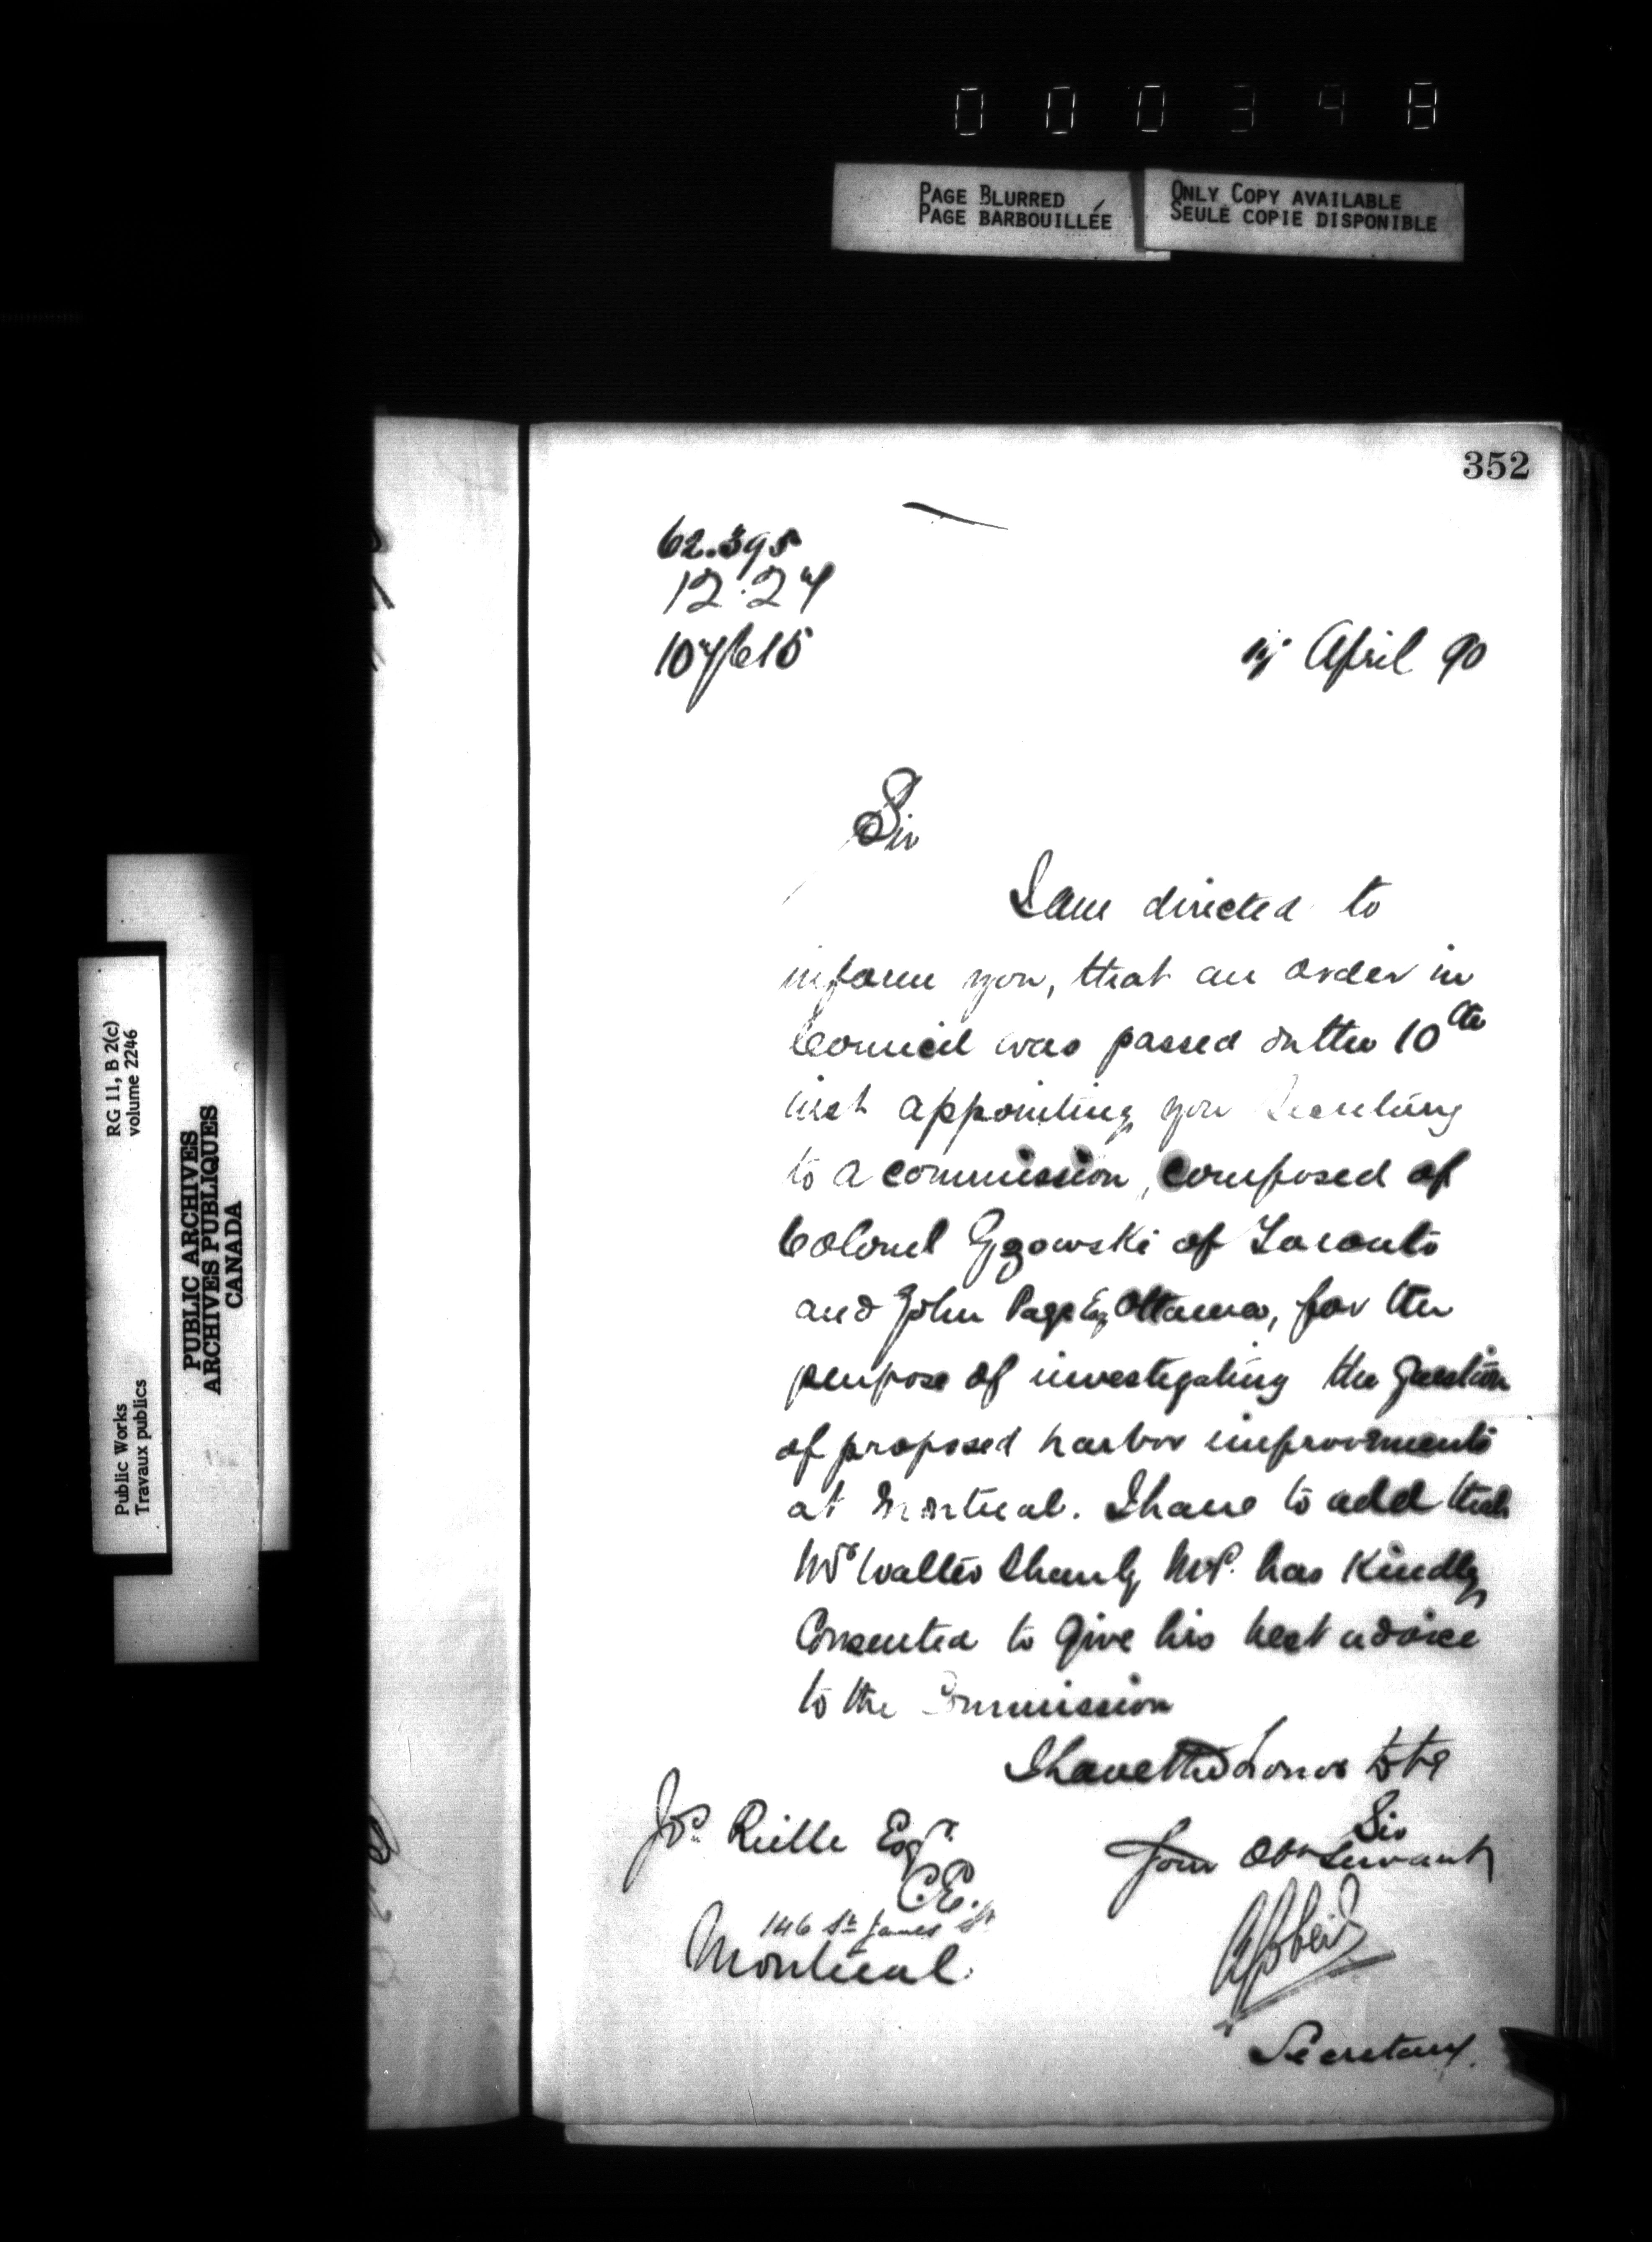 000348
PAGE BLURRED
PAGE BARBOUILLÉE
ONLY COPY AVAILABLE
SEULE COPIE DISPONIBLE
352
62.395
12.27
107615
April 90
Sir
I am directed to
inform you, that an order in
Council was passed on the 10th
inst appointing you Secretary
to a commission, composed of
Colonel Gzowski of Toronto
and John Page Esq Ottawa, for the
purpose of investigating the question
of proposed harbor improvements
at Montreal. I have to add that
Mr Walter Shanly M.P. has kindly
Consented to give his best advice
to the Commission
I have the honor to be
Sir
Your Obt Servant
Secretary.
Jos. Rielle Esqr.
C.E.
146 St James St
Montreal
RG 11, B 2(c)
volume 2246
Public Works
Travaux publics
PUBLIC ARCHIVES
ARCHIVES PUBLIQUES
CANADA